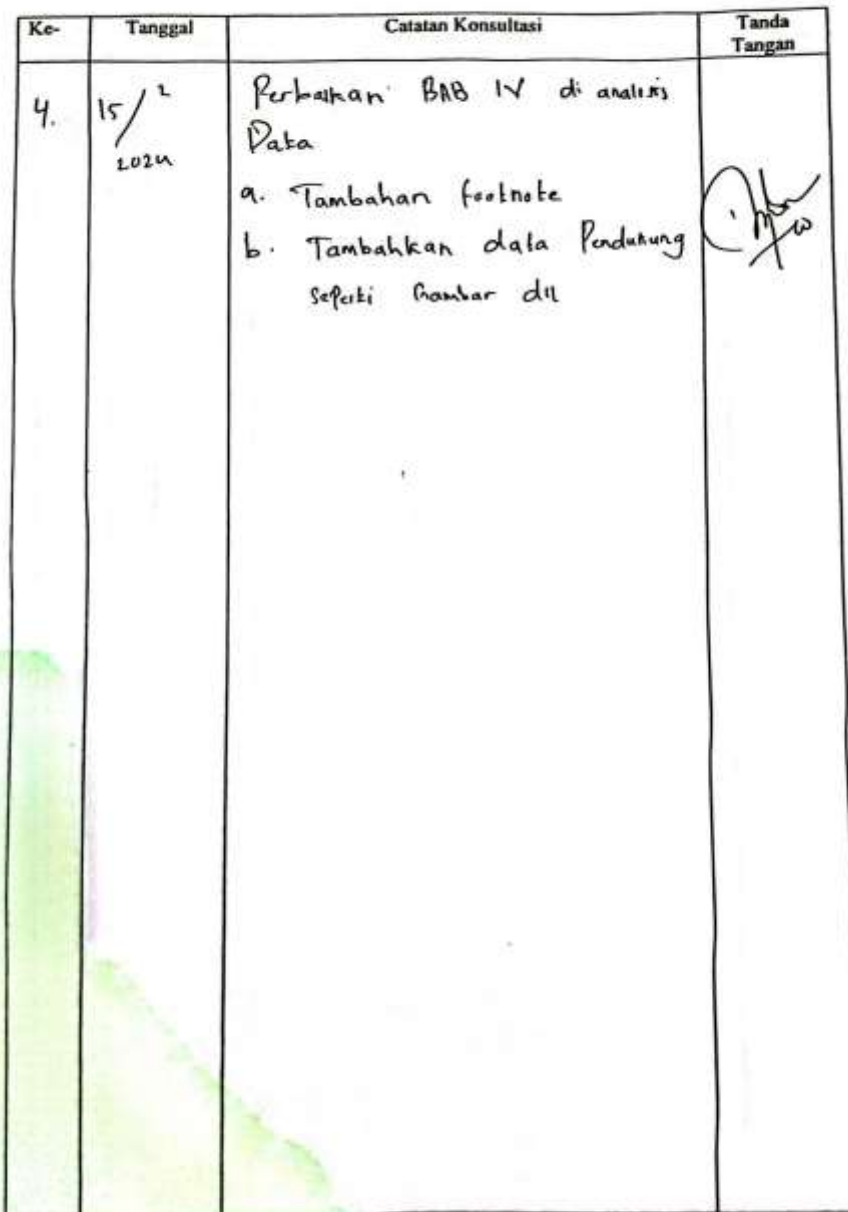 Ke- Tanggal Catatan Konsultasi Tanda Tangan
4. 15/2 2024 Perbaikan BAB IV di analisis
Data
a. Tambahan footnote
b. Tambahkan data Pendukung
seperti Gambar dll